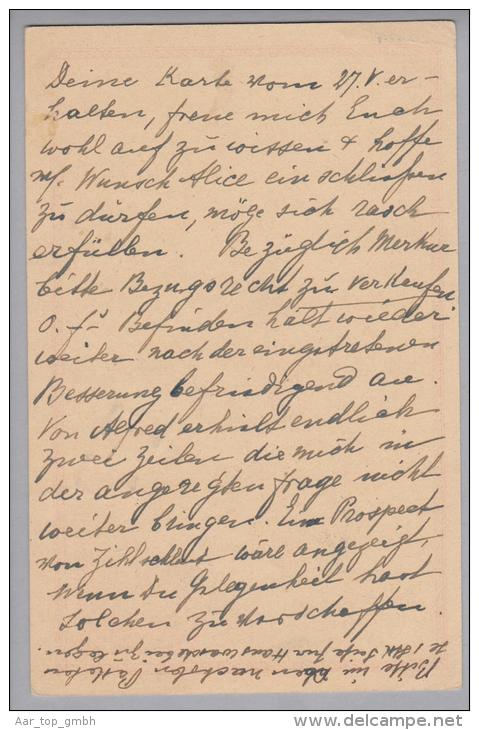 Deine Karte vom 27.V. er-
halten, freue mich Euch
wohl auf zu wissen & hoffe
m/. Wunsch Alice einschließen
zu dürfen, möge sich rasch
erfüllen. Bezüglich Merkur
bitte Bezugsrecht zu verkaufen
Befinden hält wieder
weiter nach der eingetretenen
Besserung befriedigend an.
Von Alfred erhielt endlich
zwei Zeilen die mich in
der angeregten Frage nicht
weiter bringen. Ein Prospect
von Zihlschlacht wäre angezeigt,
wenn Du Gelegenheit hast
solchen zu verschaffen.
Bitte im nächsten
zu legen.
Aar_top_gmbh
www.delcampe.net